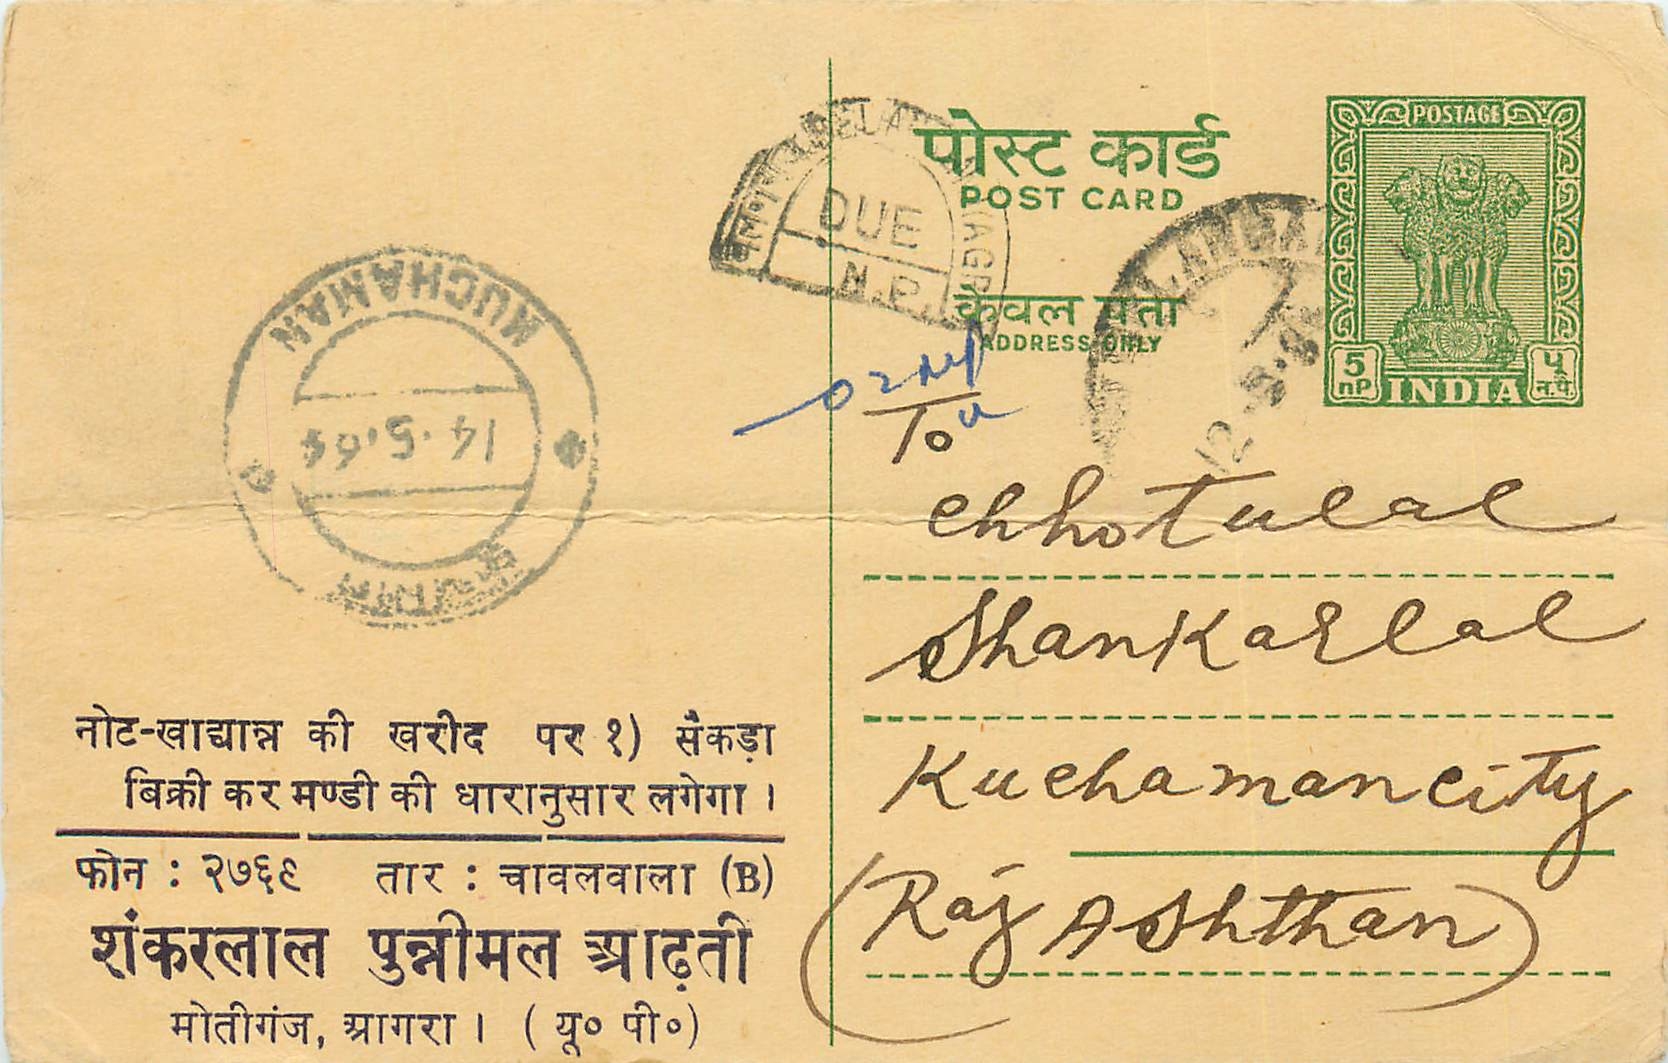 पोस्ट कार्ड
POST CARD
केवल पता
ADDRESS ONLY
POSTAGE
5 np INDIA ५ न.पै.
DUE
N.P.
KUCHAMAN
14.5.64
कुचामन
12.5.
To
Chhotulal
Shankarlal
Kuchamancity
(Raj Ashthan)
नोट-खाद्यान्न की खरीद पर १) सैंकड़ा
बिक्री कर मण्डी की धारानुसार लगेगा ।
फोन : २७६९ तार : चावलवाला (B)
शंकरलाल पुन्नीमल आढ़ती
मोतीगंज, आगरा । ( यू० पी० )